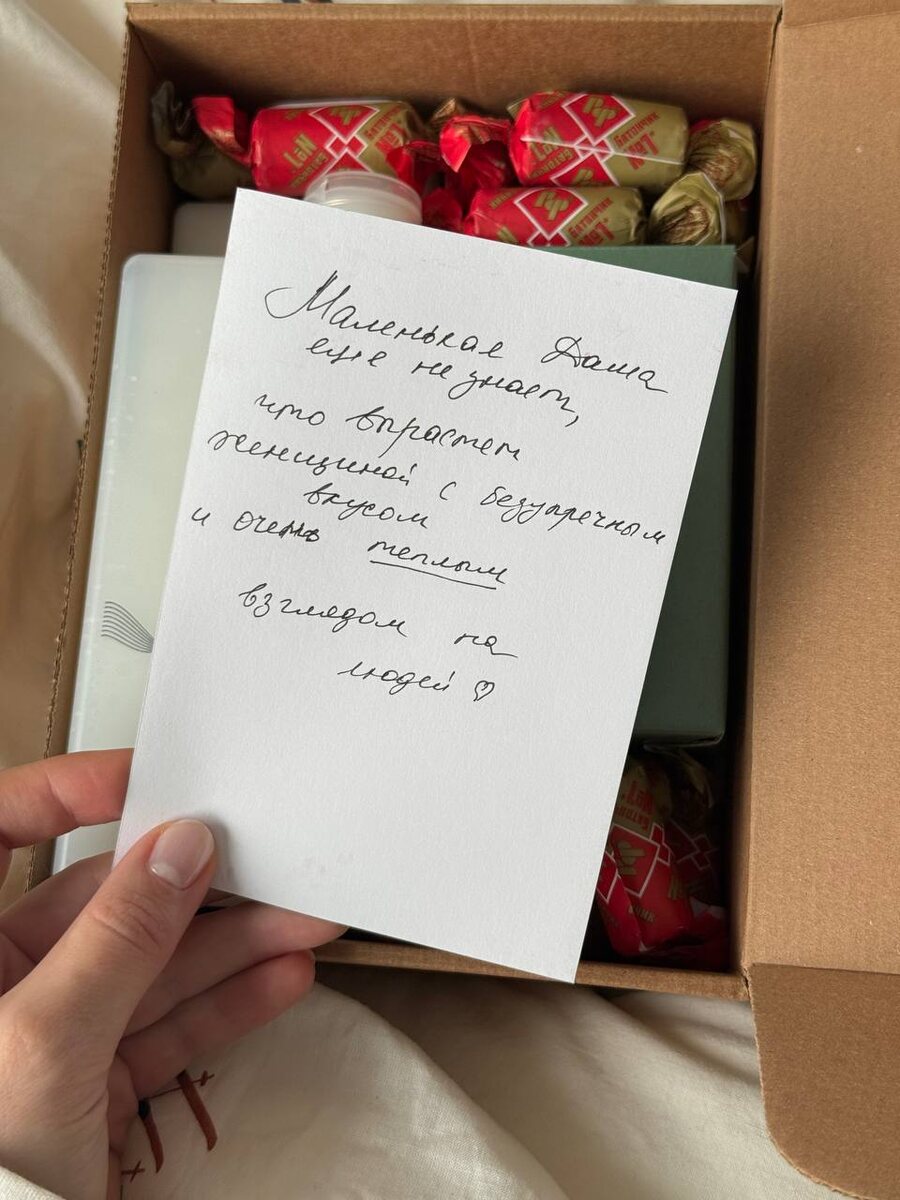 Маленькая Даша
еще не знает,
что вырастет
женщиной с безупречным
вкусом
и очень теплым
взглядом на
людей ♡